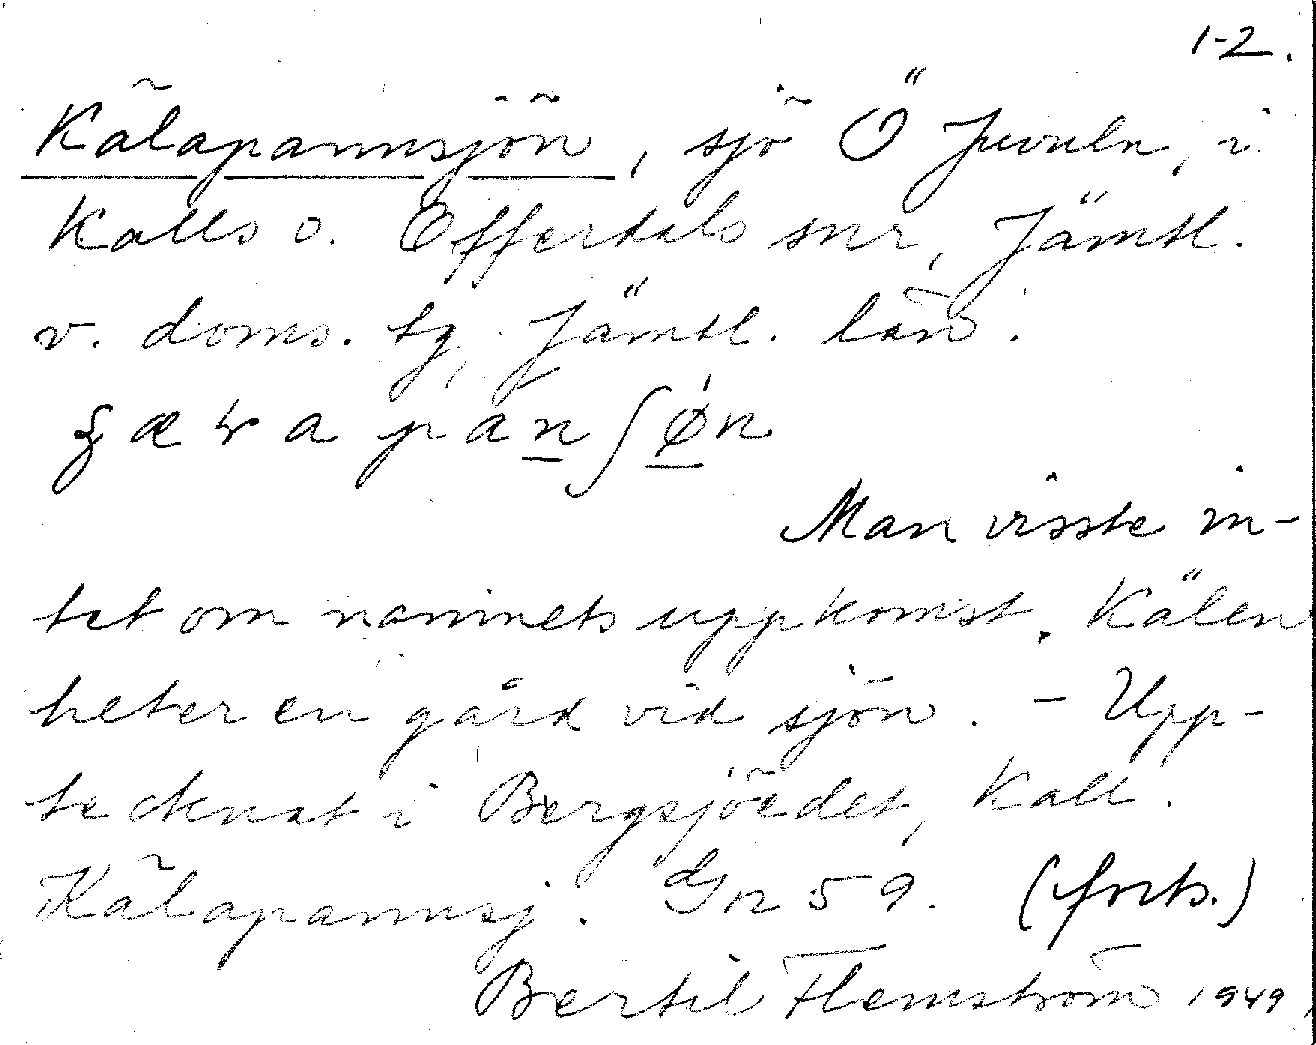 1-2.
Kälapannsjön, sjö Ö Juvuln, i
Kalls o. Offerdals snr, Jämtl.
v. doms. tg, Jämtl. län.
Man visste in-
tet om namnets uppkomst. Kälen
heter en gård vid sjön. - Upp-
tecknat i Bergsjöedet, Kall.
Kälapannsj. Gn 59. (forts.)
Bertil Flemström 1949,